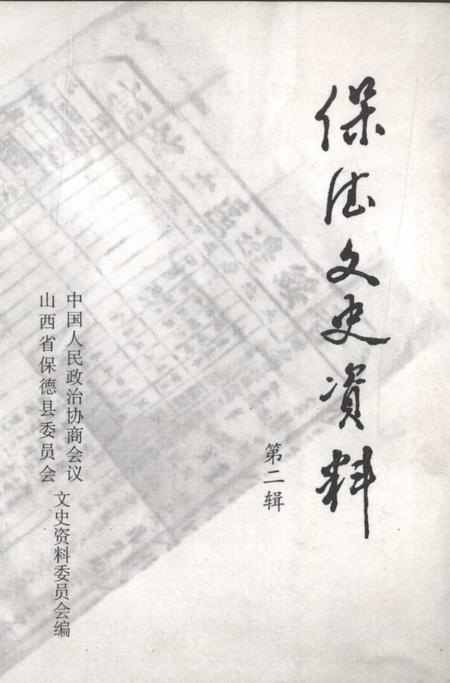 保德文史资料
第二辑
中国人民政治协商会议
山西省保德县委员会
文史资料委员会编